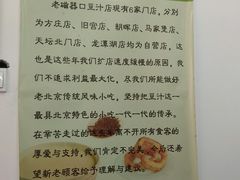 老磁器口豆汁店现有6家门店，分别
为方庄店、旧宫店、朝晖店、马家堡店、
天坛北门店、龙潭湖店均为自营店，这
也是这些年我们扩店速度缓慢的原因，我
们不追求利益最大化，尽我们所能做好
老北京传统风味小吃，坚持把豆汁这一
最具北京特色的小吃一代一代的传承。
在常苦走过的这些年离不开所有食客的
厚爱与支持，我们肯定不完美，今后还希
望新老顾客给予理解与建议。